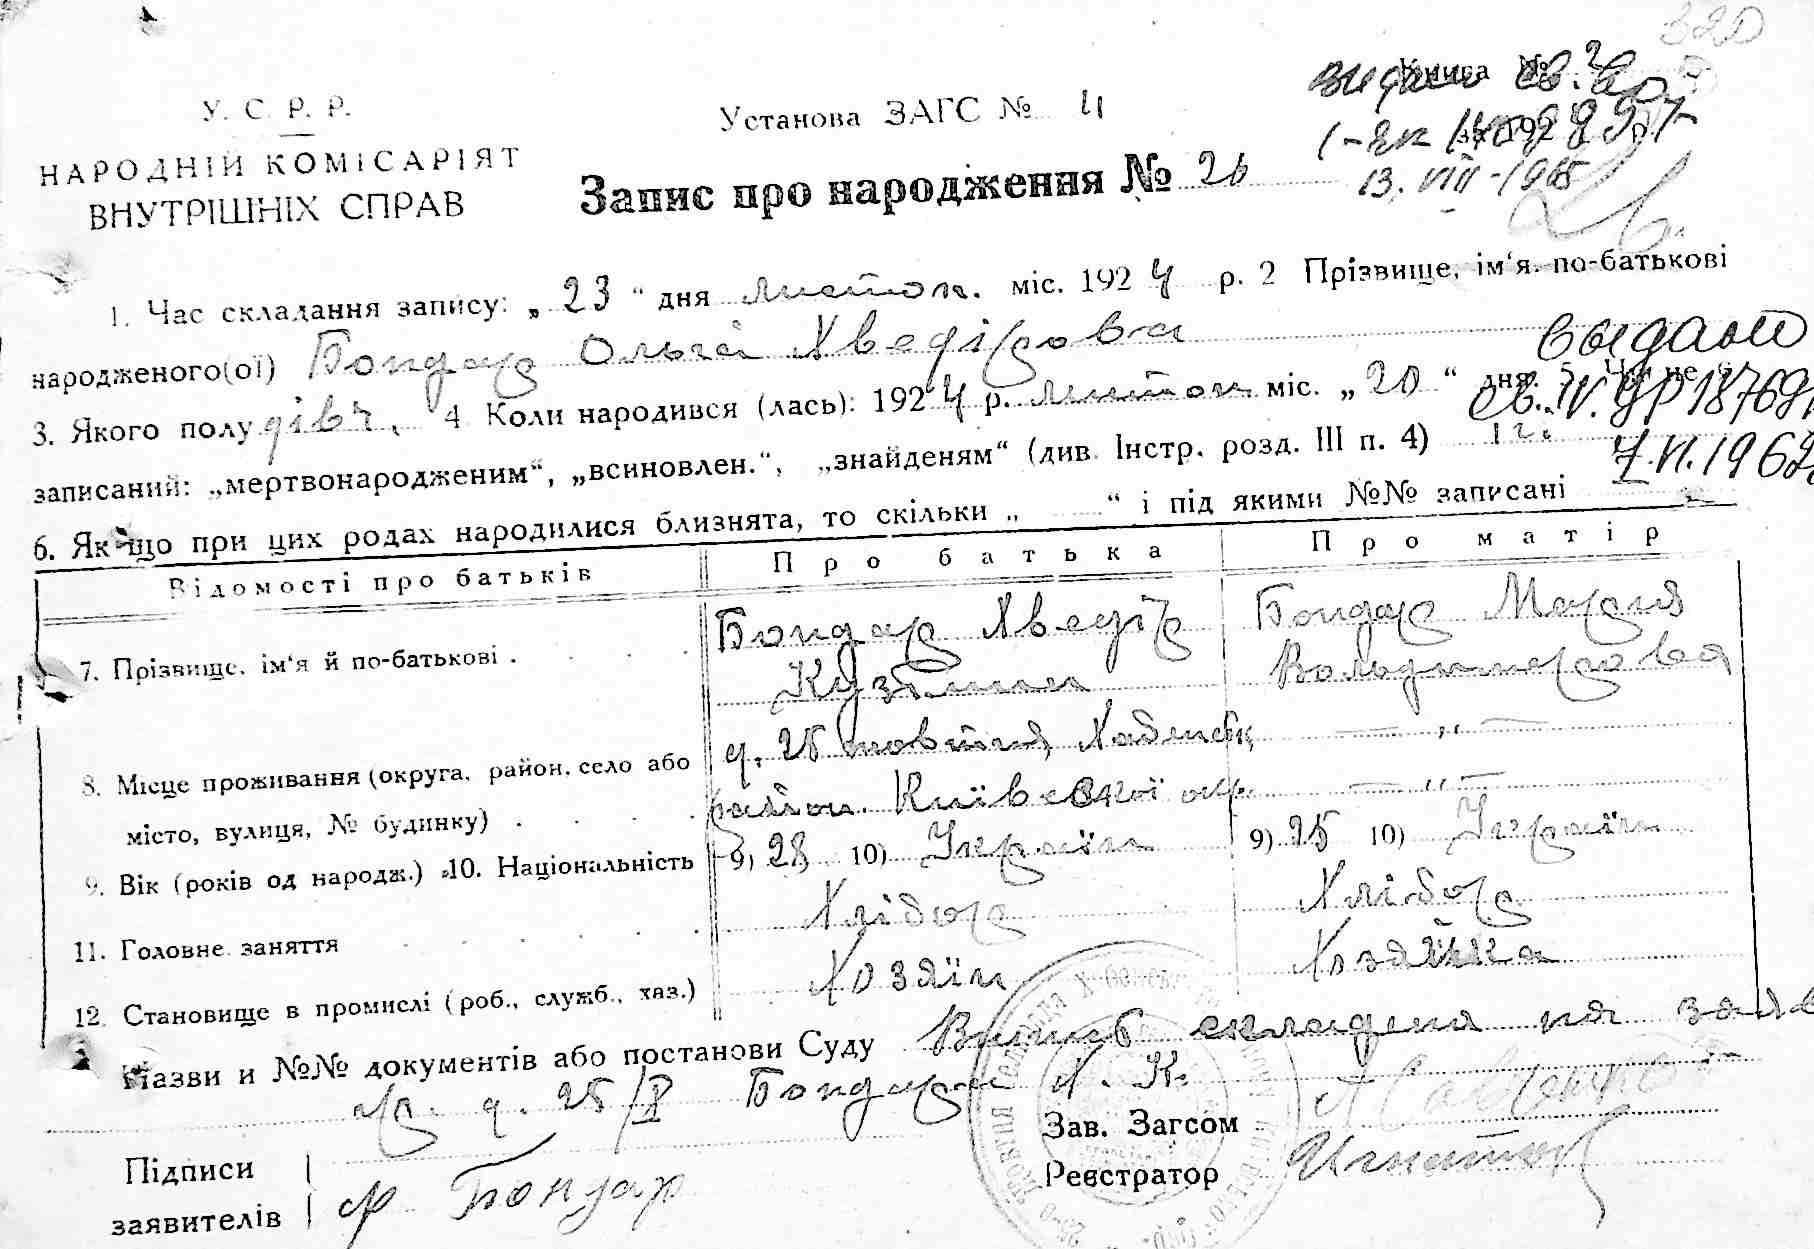 У. С. Р. Р.
НАРОДНІЙ КОМІСАРІЯТ
ВНУТРІШНІХ СПРАВ
Установа ЗАГС № 4
Запис про народження № 26
Книга №
за 192 р.
13. VIII - 1965
1. Час складання запису: „ 23 “ дня листоп. міс. 192 4 р. 2 Прізвище, ім‘я, по-батькові
народженого(ої) Бондар Ольга Хведірова
выдано
3. Якого полу дівч. 4 Коли народився (лась): 192 4 р. листоп міс. „ 20 “ дня. 5. Чи не є
св. IV. УР 18769
записаний: „мертвонародженим“, „всиновлен.“, „знайденям“ (див. Інстр. розд. III п. 4)
7.VI.1962
6. Якщо при цих родах народилися близнята, то скільки „ “ і під якими №№ записані
Відомості про батьків Про батька Про матір
7. Прізвище, ім‘я й по-батькові . Бондар Хведір Бондар Мария
Кузьмин Вольдимерова
8. Місце проживання (округа, район, село або х. 25 Хабенськ — „ —
місто, вулиця, № будинку) район. Київської окр. — „ —
9. Вік (років од народж.) 10. Національність 9) 28 10) Україн 9) 25 10) Україн
11. Головне заняття Хлібор Хлібор
12. Становище в промислі (роб., служб., хаз.) Хозяїн Хозяйка
Назви и №№ документів або постанови Суду Випис складена на заяв
гр. 25/X Бондаря Х. К.
Зав. Загсом
Підписи
заявителів Бондар
Реєстратор